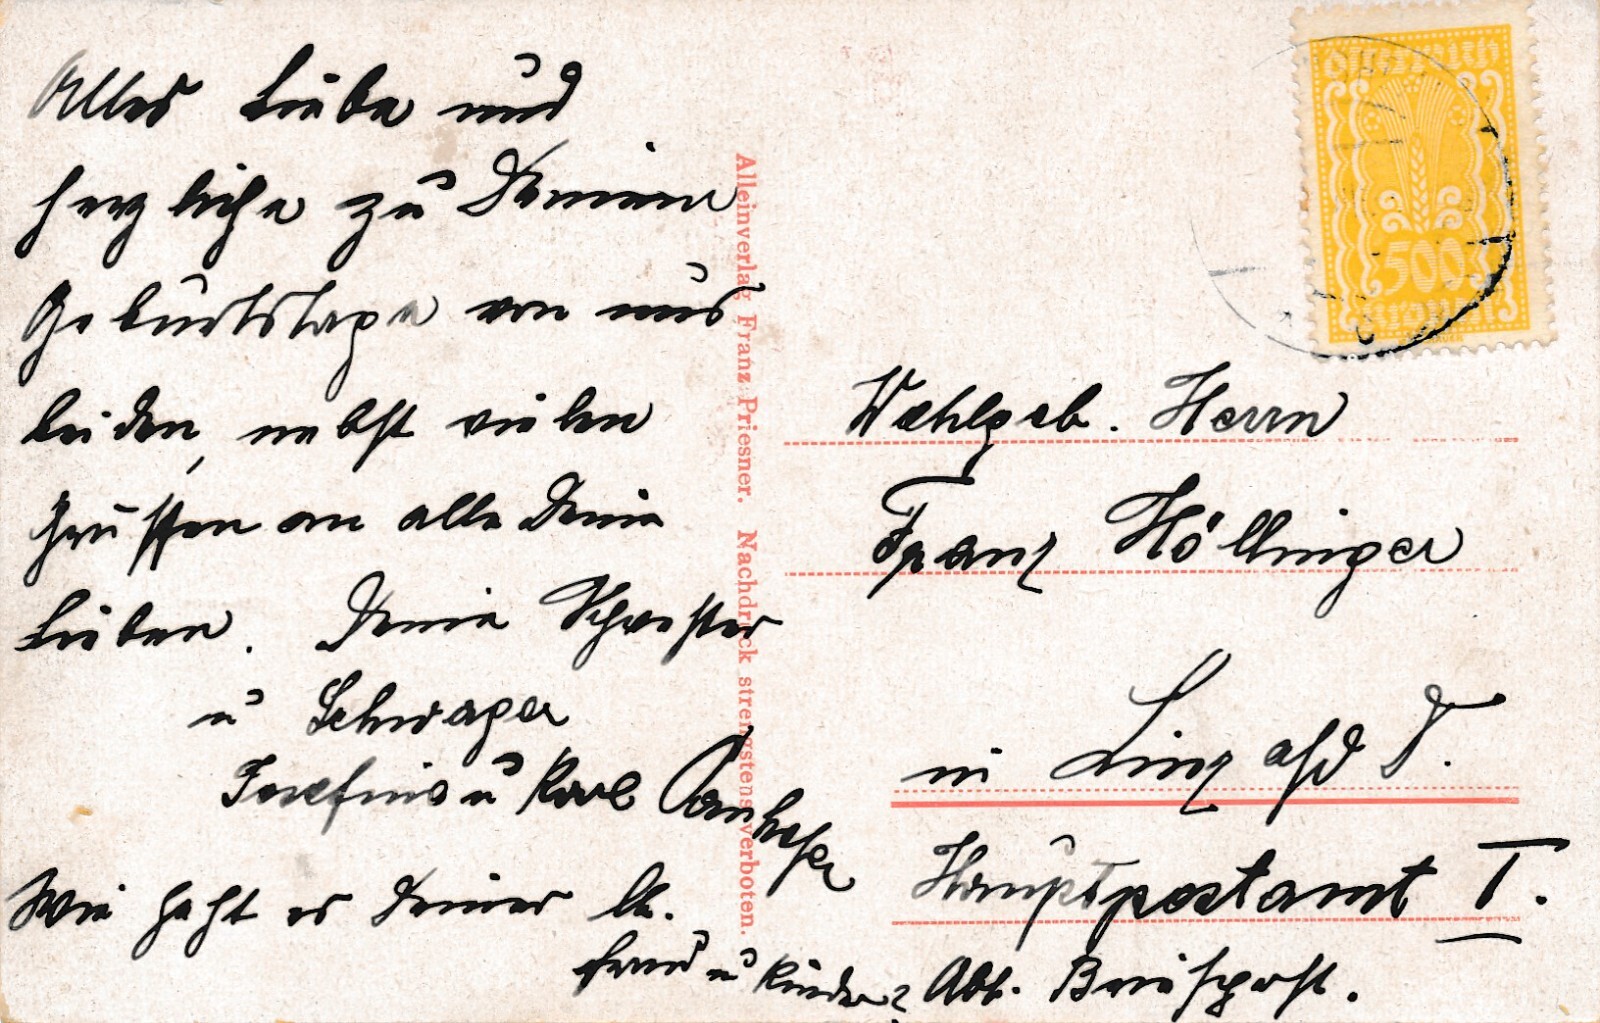 Alles Liebe und
herzliche zu Deinem
Geburtstage von uns
beiden, nebst vielen
Grüssen an alle Deine
Lieben. Deine Schwester
u Schwager
Josefine u Karl
Wie geht es Deiner lb.
Frau u Kinder?
Alleinverlag Franz Priesner. Nachdruck strengstens verboten.
Österreich
500
Kronen
Wohlgeb. Herrn
Franz Höllinger
in Linz a/d D.
Hauptpostamt I.
Abt. Briefpost.